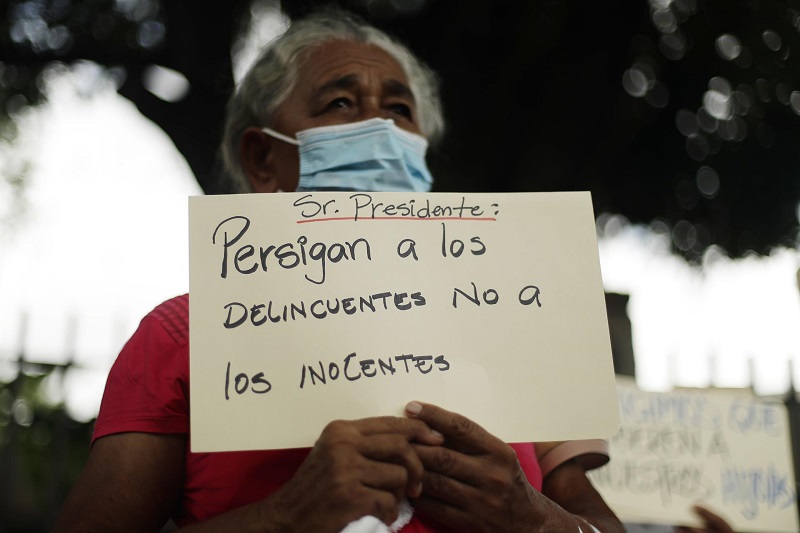 Sr. Presidente:
Persigan a los
DELINCUENTES No a
los INOCENTES
QUE
A
NUESTROS HIJOS